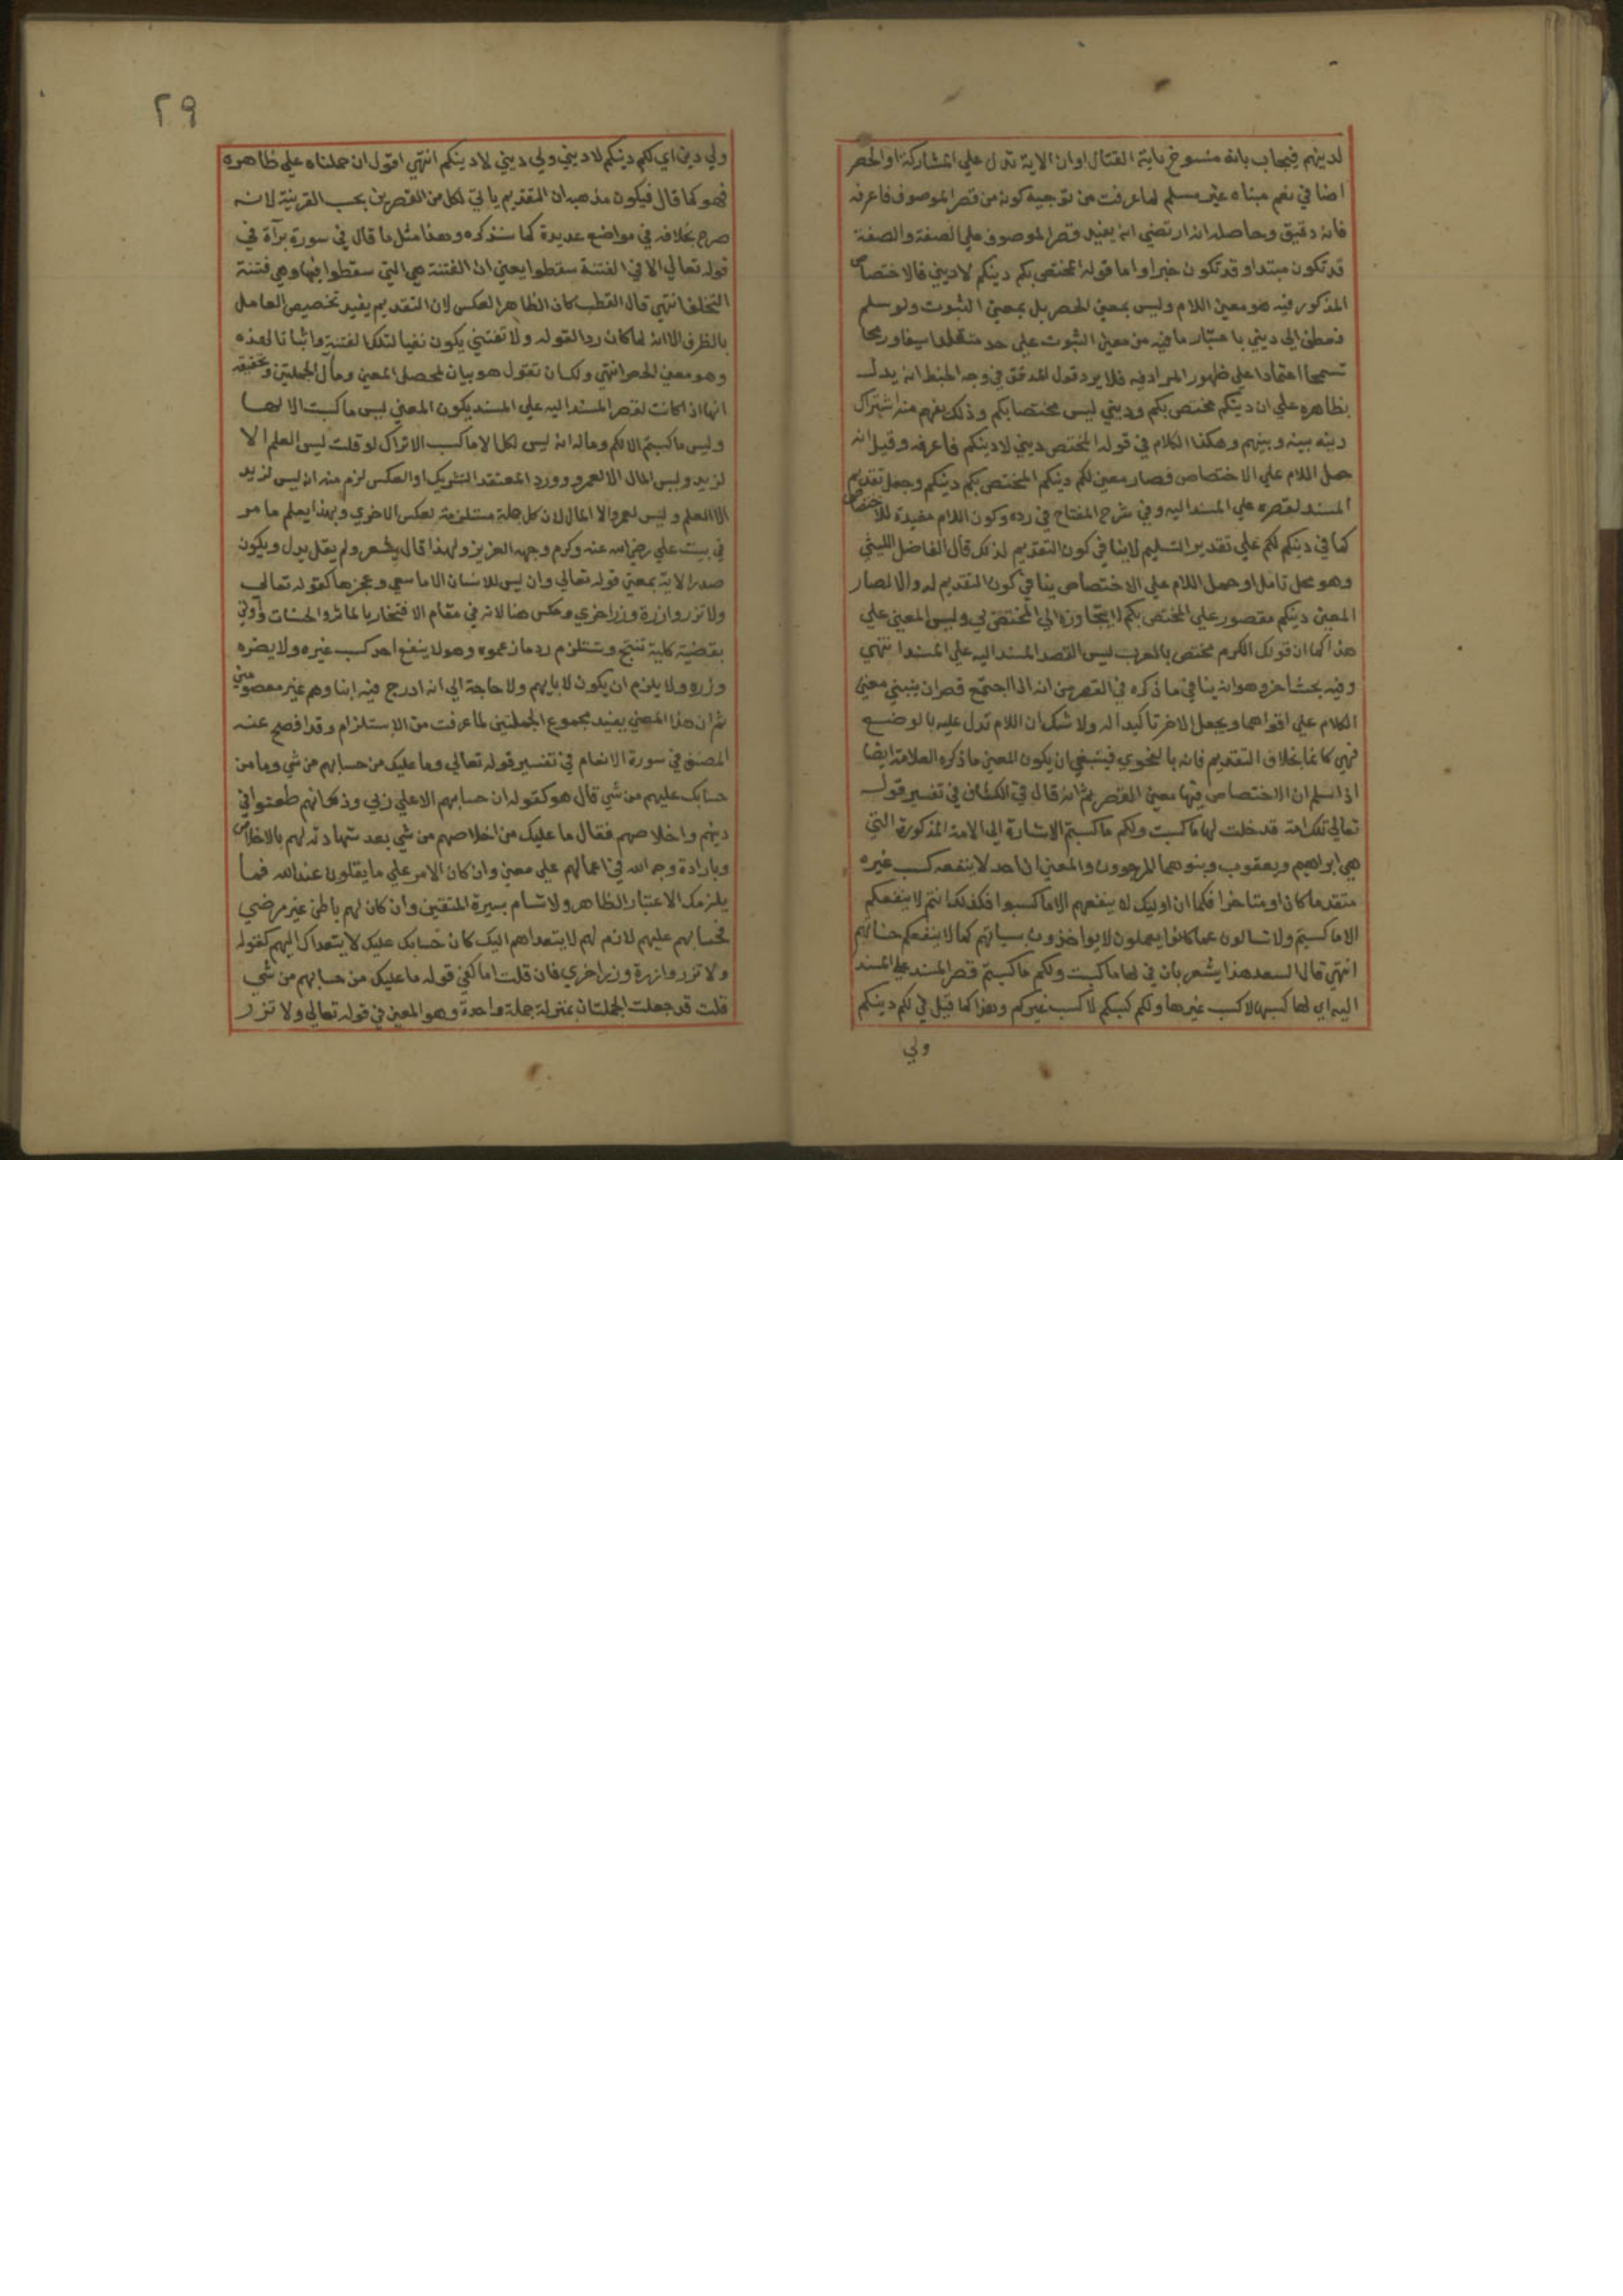 لدينهم فيجاب بانه منسوخ باية القتال اوان الاية تدل علي المشاركة او الحصر
ايضا في نعم مبناه غير مسلم لما عرفت من توجيه كونه من قصر الموصوف فاعرفه
فانه دقيق وحاصله انه ارتضي انه يفيد قصر الموصوف علي الصفة والصفة
قد تكون مبتدا وقد تكون خبرا واما قوله المختص بكم دينكم لا ديني فالاختصاص
المذكور فيه هو معني اللام وليس بمعني الحصر بل بمعني الثبوت ولو سلم
فعطف الي ديني باعتبار ما فيه من معني الثبوت علي حد متقلدا سيفا ورمحا
تسمحا اعتمادا علي ظهور المراد فيه فلا يرد قول المدقق في وجه الخبط انه يدل
بظاهره علي ان دينكم مختص بكم وديني ليس مختصا بكم وذلك يفهم منه اشتراك
دينه بينه وبينهم وهكذا الكلام في قوله المختص ديني لا دينكم فاعرفه وقيل انه
حمل اللام علي الاختصاص فصار معني لكم دينكم المختص بكم دينكم وجعل تقديم
المسند لقصره علي المسند اليه وفي شرح المفتاح في رده وكون اللام مفيدة للاختصاص
كما في دينكم لكم علي تقدير التسليم لا ينافي كون التقديم لذلك قال الفاضل الليثي
وهو محل تامل او حمل اللام علي الاختصاص ينافي كون التقديم له والا لصار
المعني دينكم مقصور علي المختص بكم لا يتجاوزه الي المختص بي وليس المعني علي
هذا كما ان قولك الكرم مختص بالعرب ليس القصد المسند اليه علي المسند انتهي
وفيه بحث اخر وهو انه ينافي ما ذكره في القصرين انه اذا اجتمع قصران ينبني معني
الكلام علي اقواهما ويجعل الاخر تاكيدا له ولا شك ان اللام تدل عليه بالوضع
فهي كانما بخلاف التقديم فانه بالفحوي فينبغي ان يكون المعني ما ذكره العلامة ايضا
اذا سلم ان الاختصاص فيها معني القصر ثم انه قال في الكشاف في تفسير قوله
تعالي تلك امة قد خلت لها ما كسبت ولكم ما كسبتم الاشارة الي الامة المذكورة التي
هي ابراهيم ويعقوب وبنوهما الموحدون والمعني ان احدا لا ينفعه كسب غيره
متقدما كان او متاخرا فكما ان اوليك لا ينفعهم الا ما كسبوا فكذلك انتم لا ينفعكم
الا ما كسبتم ولا تسالون عما كانوا يعملون لا يواخذون سياتهم كما لا ينفعكم حسناتهم
انتهي قال السعد هذا يشعر بان في لها ما كسبت ولكم ما كسبتم قصر المسند علي المسند
اليه اي لها كسبها لا كسب غيرها ولكم كسبكم لا كسب غيركم وهذا كما قيل في لكم دينكم
ولي
٢٩
ولي دين اي لكم دينكم لا ديني ولي ديني لا دينكم انتهي اقول ان حملناه علي ظاهره
فهو كما قال فيكون مذهبه ان التقديم ياتي لكل من القصرين بحسب القرينة لانه
صرح بخلافه في مواضع عديدة كما سنذكره وهذا مثل ما قال في سورة برآة في
قوله تعالي الا في الفتنة سقطوا يعني ان الفتنة هي التي سقطوا فيها وهي فتنة
التخلف انتهي قال القطب كان الظاهر العكس لان التقديم يفيد تخصيص العامل
بالظرف الا انه لما كان ردا لقوله ولا تفتني يكون نفيا لتلك الفتنة واثباتا لهذه
وهو معني الحصر انتهي ولك ان تقول هو بيان لمحصل المعني ومآل الجملتين وتحقيقه
انها اذا كانت لقصر المسند اليه علي المسند يكون المعني ليس ما كسبت الا لها
وليس ما كسبتم الا لكم وماله انه ليس لكل الا ما كسب الا تراك لو قلت ليس العلم الا
لزيد وليس المال الا لعمرو ورد المعتقد التشريك او العكس لزم منه انه ليس لزيد
الا العلم وليس لعمرو الا المال لان كل جملة مستلزمة لعكس الاخري وبهذا يعلم ما مر
في بيت علي رضي الله عنه وكرم وجهه العزيز ولهذا قال يشعر ولم يقل يدل ويكون
صدر الاية بمعني قوله تعالي وان ليس للانسان الا ما سعي وعجزها كقوله تعالي
ولا تزر وازرة وزر اخري وعكس هنا لانه في مقام الافتخار بالماثر والحسنات وأوتي
بقضية كلية تنتج وتستلزم رد ما زعموه وهو لا ينفع احد كسب غيره ولا يضره
وزره ولا يلزم ان يكون لابايهم ولا حاجة الي انه ادرج فيه ابنا وهم غير معصومين
ثم ان هذا المعني يفيد مجموع الجملتين لما عرفت من الاستلزام وقد افصح عنه
المصنف في سورة الانعام في تفسير قوله تعالي وما عليك من حسابهم من شي وما من
حسابك عليهم من شي قال هو كقوله ان حسابهم الا علي ربي وذلك انهم طعنوا في
دينهم واخلاصهم فقال ما عليك من اخلاصهم من شي بعد شهادته لهم بالاخلاص
وبارادة وجه الله في اعمالهم علي معني وان كان الامر علي ما يقلون عند الله فما
يلزمك الا اعتبار الظاهر والاتسام بسيرة المتقين وان كان لهم باطن غير مرضي
فحسابهم عليهم لازم لهم لا يتعداهم اليك كان حسابك عليك لا يتعداك اليهم كقوله
ولا تزر وازرة وزر اخري فان قلت اما كفي قوله ما عليك من حسابهم من شي
قلت قد جعلت الجملتان بمنزلة جملة واحدة وهو المعني في قوله تعالي ولا تزر